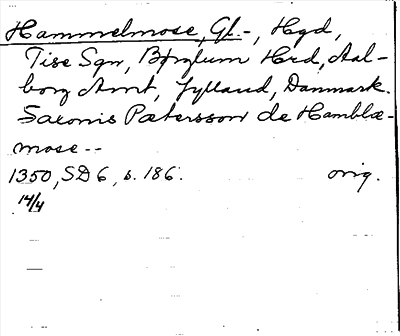 Hammelmose, Gl.-, Hgd,
Tise Sgn, Børglum Hrd, Aal-
borg Amt, Jylland, Danmark.
Saxonis Pætersson de Hamblæ-
mose --
1350, SD 6, s. 186. orig.
14/4